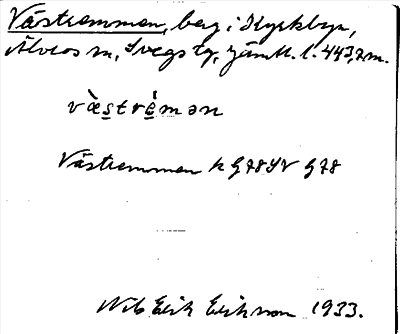 Västremmen, berg i Kyrkbyn,
Älvros sn, Svegs tg, Jämtl. l. 443,2 m.
væ̀strèmən
Västremmen k G78SV G78
Nils Erik Eriksson 1933.